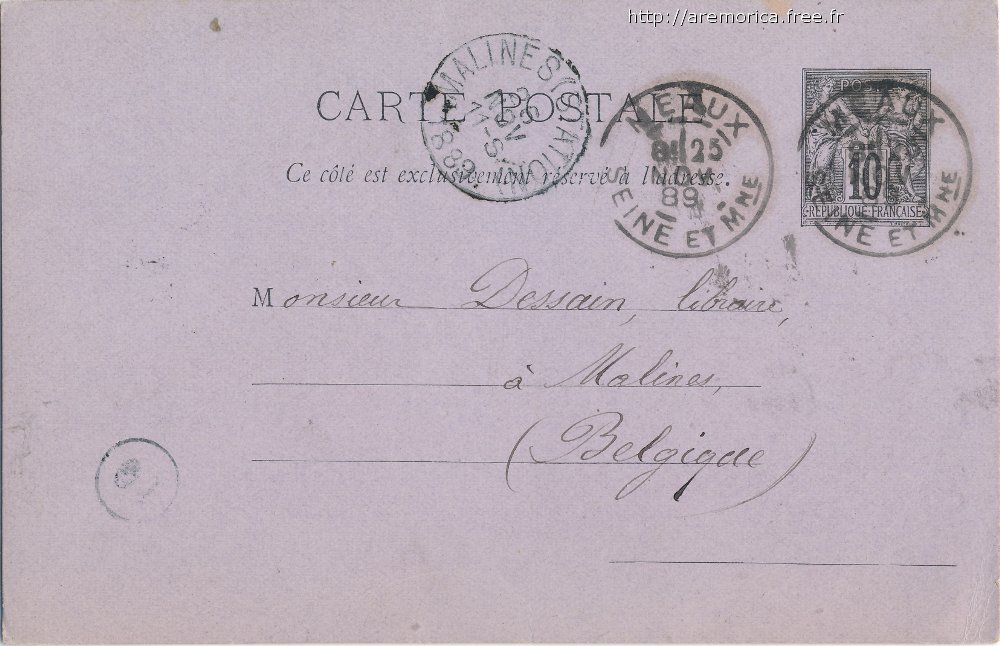 http://aremorica.free.fr
MALINES (STATION)
NOV
11-S
1889
CARTE POSTALE
MEAUX
25
89
SEINE ET Mne
POSTES
10
REPUBLIQUE FRANÇAISE
AUX
SEINE ET Mne
Ce côté est exclusivement réservé à l'adresse.
Monsieur Dessain, libraire,
à Malines,
(Belgique)